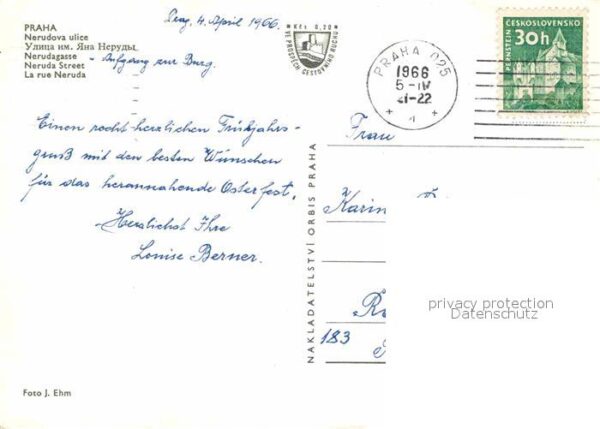 Prag, 4. April 1966.
PRAHA
Nerudova ulice
Улица им. Яна Неруды
Nerudagasse - Aufgang zur Burg.
Neruda Street
La rue Neruda
Kčs 0,20
VE PROSPĚCH CESTOVNÍHO RUCHU
PRAHA 025
1966
5.-IV
21-22
+ 1 +
ČESKOSLOVENSKO
30h
PERNŠTEJN
Einen recht herzlichen Frühjahrs-
gruß mit den besten Wünschen
für das herannahende Osterfest.
Herzlichst Ihre
Louise Berner.
NAKLADATELSTVÍ ORBIS PRAHA
Frau
Karin
183
privacy protection
Datenschutz
Foto J. Ehm